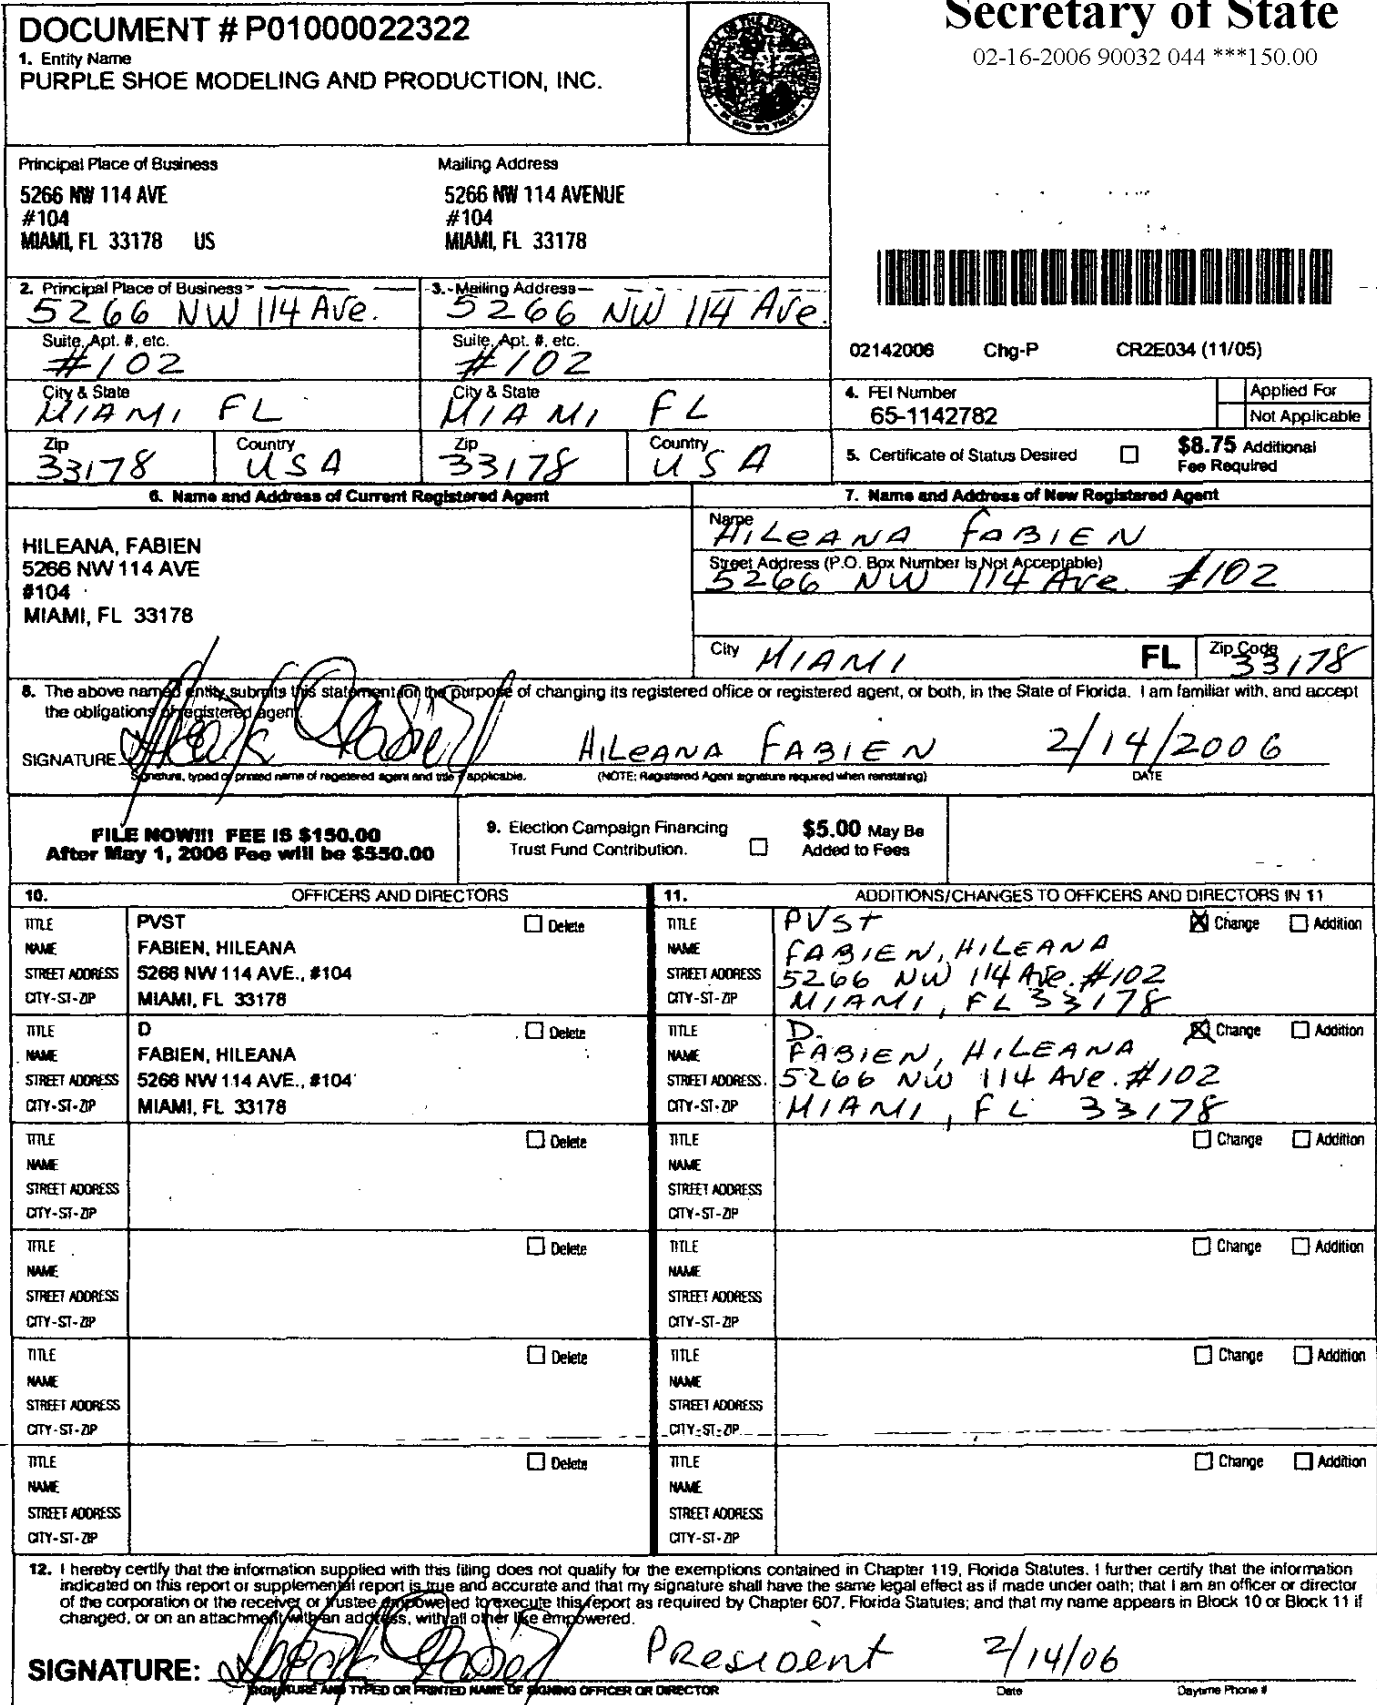 DOCUMENT # P01000022322
1. Entity Name
PURPLE SHOE MODELING AND PRODUCTION, INC.
Secretary of State
02-16-2006 90032 044 ***150.00
Principal Place of Business
5266 NW 114 AVE
#104
MIAMI, FL 33178 US
Mailing Address
5266 NW 114 AVENUE
#104
MIAMI, FL 33178
2. Principal Place of Business
5266 NW 114 Ave.
Suite, Apt. #, etc.
#102
City & State
MIAMI FL
Zip
33178
Country
USA
3. Mailing Address
5266 NW 114 Ave.
Suite, Apt. #, etc.
#102
City & State
MIAMI FL
Zip
33178
Country
USA
02142006 Chg-P CR2E034 (11/05)
4. FEI Number
65-1142782
Applied For
Not Applicable
5. Certificate of Status Desired
$8.75 Additional
Fee Required
6. Name and Address of Current Registered Agent
HILEANA, FABIEN
5266 NW 114 AVE
#104
MIAMI, FL 33178
7. Name and Address of New Registered Agent
Name
HILEANA FABIEN
Street Address (P.O. Box Number Is Not Acceptable)
5266 NW 114 Ave. #102
City MIAMI FL Zip Code 33178
8. The above named entity submits this statement for the purpose of changing its registered office or registered agent, or both, in the State of Florida. I am familiar with, and accept
the obligations of registered agent.
SIGNATURE HILEANA FABIEN 2/14/2006
Signature, typed or printed name of registered agent and title if applicable. (NOTE: Registered Agent signature required when reinstating) DATE
FILE NOW!!! FEE IS $150.00
After May 1, 2006 Fee will be $550.00
9. Election Campaign Financing
Trust Fund Contribution.
$5.00 May Be
Added to Fees
10. OFFICERS AND DIRECTORS
TITLE PVST Delete
NAME FABIEN, HILEANA
STREET ADDRESS 5266 NW 114 AVE., #104
CITY-ST-ZIP MIAMI, FL 33178
TITLE D Delete
NAME FABIEN, HILEANA
STREET ADDRESS 5266 NW 114 AVE., #104
CITY-ST-ZIP MIAMI, FL 33178
TITLE Delete
NAME
STREET ADDRESS
CITY-ST-ZIP
TITLE Delete
NAME
STREET ADDRESS
CITY-ST-ZIP
TITLE Delete
NAME
STREET ADDRESS
CITY-ST-ZIP
TITLE Delete
NAME
STREET ADDRESS
CITY-ST-ZIP
11. ADDITIONS/CHANGES TO OFFICERS AND DIRECTORS IN 11
TITLE PVST Change Addition
NAME FABIEN, HILEANA
STREET ADDRESS 5266 NW 114 Ave. #102
CITY-ST-ZIP MIAMI, FL 33178
TITLE D. Change Addition
NAME FABIEN, HILEANA
STREET ADDRESS 5266 NW 114 Ave. #102
CITY-ST-ZIP MIAMI, FL 33178
TITLE Change Addition
NAME
STREET ADDRESS
CITY-ST-ZIP
TITLE Change Addition
NAME
STREET ADDRESS
CITY-ST-ZIP
TITLE Change Addition
NAME
STREET ADDRESS
CITY-ST-ZIP
TITLE Change Addition
NAME
STREET ADDRESS
CITY-ST-ZIP
12. I hereby certify that the information supplied with this filing does not qualify for the exemptions contained in Chapter 119, Florida Statutes. I further certify that the information
indicated on this report or supplemental report is true and accurate and that my signature shall have the same legal effect as if made under oath; that I am an officer or director
of the corporation or the receiver or trustee empowered to execute this report as required by Chapter 607, Florida Statutes; and that my name appears in Block 10 or Block 11 if
changed, or on an attachment with an address, with all other like empowered.
SIGNATURE: President 2/14/06
SIGNATURE AND TYPED OR PRINTED NAME OF SIGNING OFFICER OR DIRECTOR Date Daytime Phone #